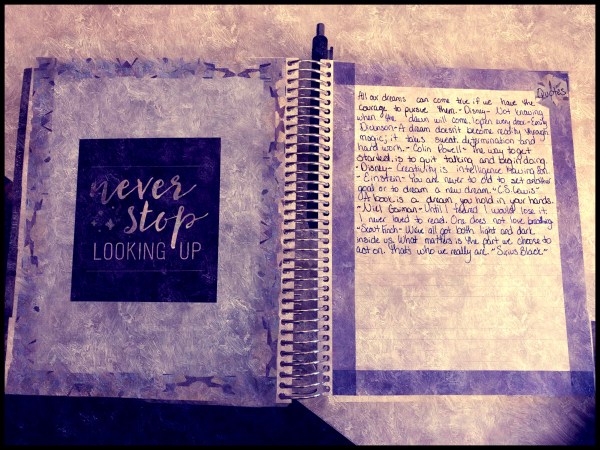 never
stop
LOOKING UP
Quotes
All our dreams can come true if we have the
courage to pursue them.-Disney- Not knowing
when the dawn will come. I open every door-Emily
Dickinson-A dream doesn't become reality through
magic; it takes sweat, determination and
hard work.- Colin Powell- The way to get
started is to quit talking and begin doing.
-Disney- Creativity is intelligence having fun.
-Einstein- You are never to old to set another
goal or to dream a new dream."C.S.Lewis"-
"A book is a dream you hold in your hands.
-Niel Gaiman- Until I feared I would lose it.
I never loved to read. One does not love breathing
-Scout Finch- We've all got both light and dark
inside us. What matters is the part we choose to
act on. Thats who we really are. "Sirius Black"-